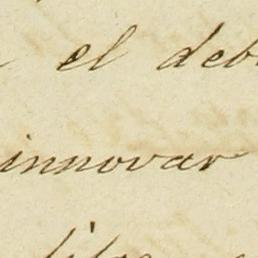 el deb
innovar